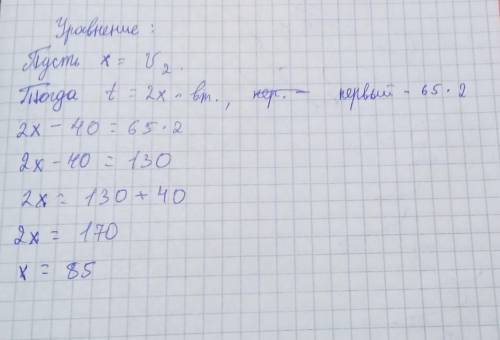 Уравнение :
Пусть x = V₂.
Тогда t = 2x - вт., первый - 65 · 2
2x - 40 = 65 · 2
2x - 40 = 130
2x = 130 + 40
2x = 170
x = 85